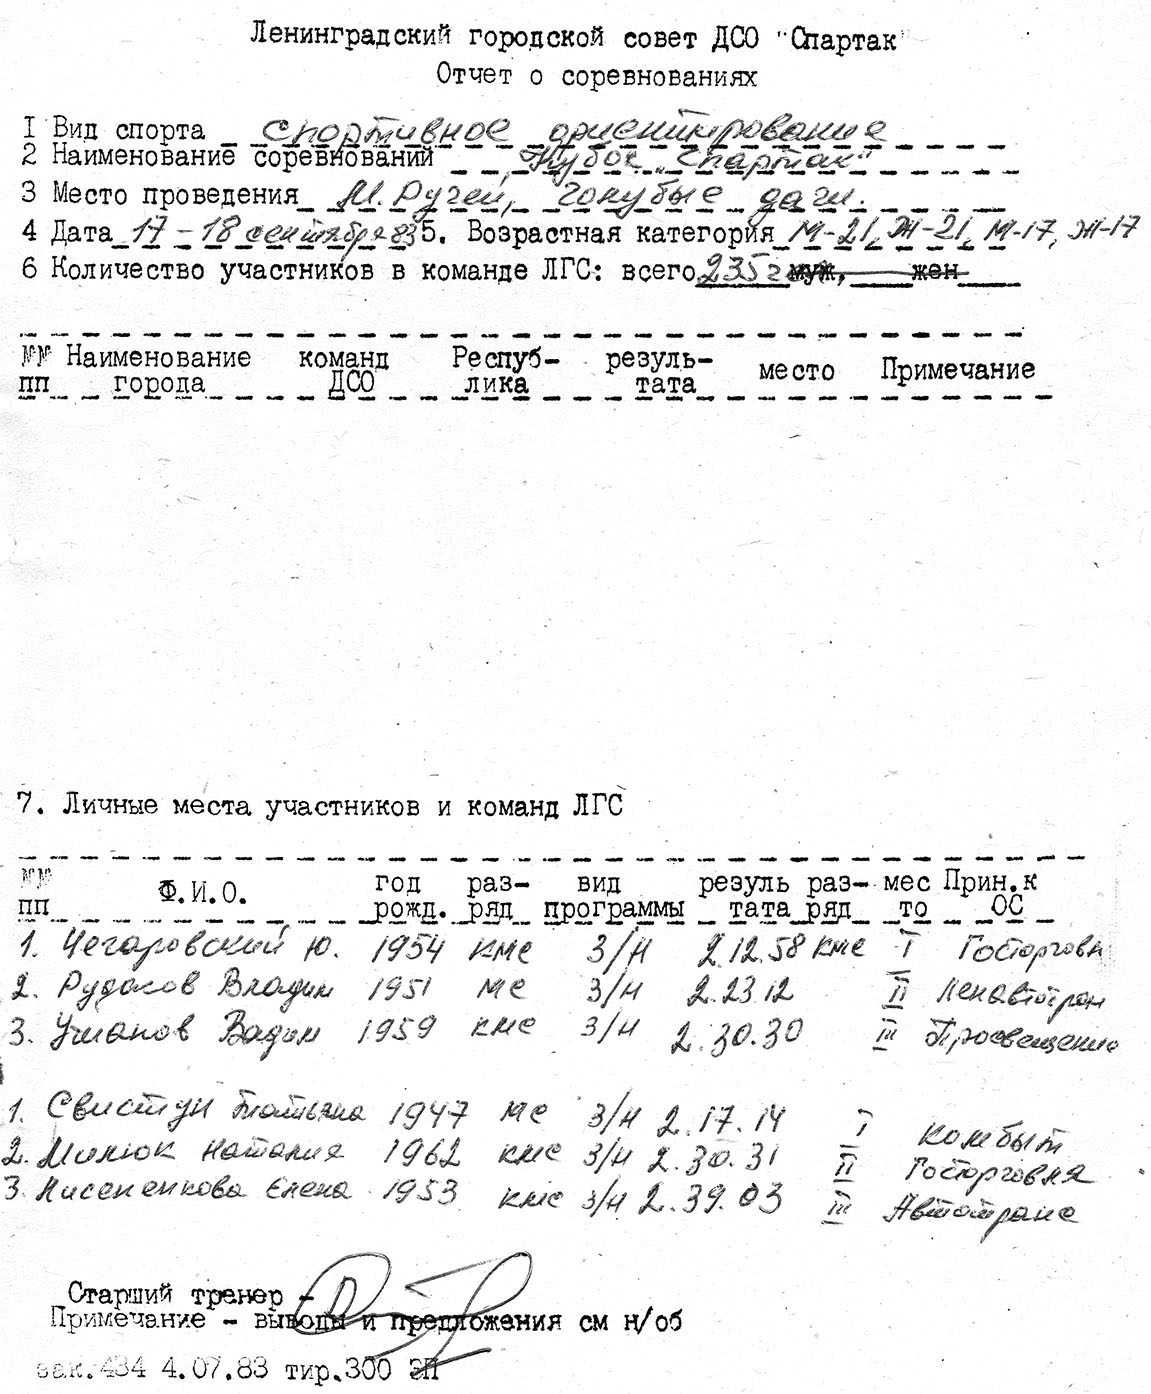 Ленинградский городской совет ДСО "Спартак"
Отчет о соревнованиях
I Вид спорта спортивное ориентирование
2 Наименование соревнований "Кубок "Спартак"
3 Место проведения М. Ручей, Голубые дачи.
4 Дата 17-18 сентября 83 5. Возрастная категория М-21, Ж-21, М-17, Ж-17
6 Количество участников в команде ЛГС: всего 235ч муж, жен
№№ Наименование команд Респуб- резуль- место Примечание
пп города ДСО лика тата
7. Личные места участников и команд ЛГС
№№ Ф.И.О. год раз- вид резуль раз- мес Прин.к
пп рожд. ряд программы тата ряд то ОС
1. Чегаровский Ю. 1954 кмс З/Н 2.12.58 кмс I Госторговл
2. Рудаков Владим 1951 мс З/Н 2.23.12 II Ленавтотран
3. Усманов Вадим 1959 кмс З/Н 2.30.30 III Просвещение
1. Свистун Татьяна 1947 мс З/Н 2.17.14 I Комбыт
2. Милюк Наталия 1962 кмс З/Н 2.30.31 II Госторговля
3. Елена 1953 кмс З/Н 2.39.03 III Автотранс
Старший тренер -
Примечание - выводы и предложения см н/об
зак.434 4.07.83 тир.300 ЭП